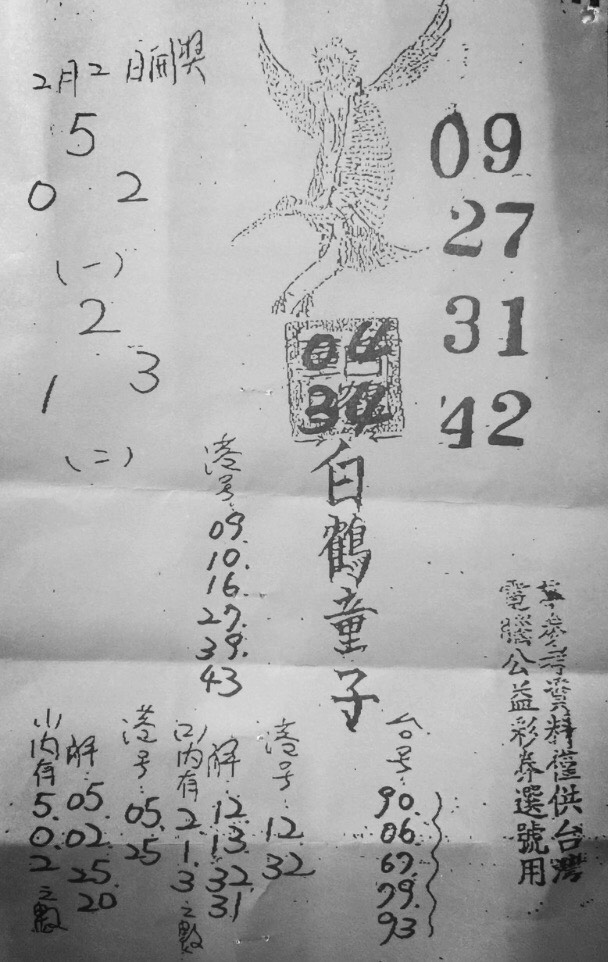 2月2日開獎
5
0 2
(一)
2
1 3
(二)
09
27
31
42
04
34
白鶴童子
港号:
09.
10.
16.
27.
39.
43
資料僅供台灣
電腦公益彩券選號用
台号:
90.
06.
67.
79.
93.
港号:
12.
32
解:
12.
13.
32.
31
(二)内有
2.
1.
3
之數
港号:
05.
25
解:
05.
02.
25.
20
(一)内有
5.
0.
2
之數